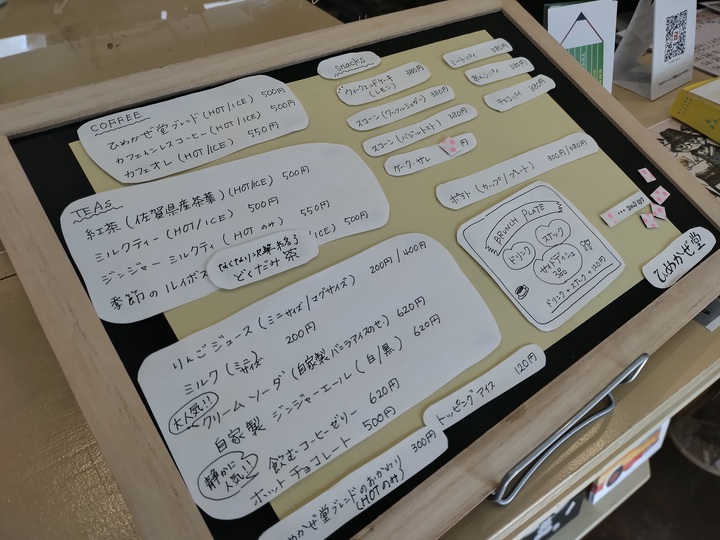 COFFEE
ひめかぜ堂ブレンド (HOT/ICE) 500円
カフェインレスコーヒー (HOT/ICE) 500円
カフェオレ (HOT/ICE) 550円
TEAs
紅茶 (佐賀県産茶葉) (HOT/ICE) 500円
ミルクティー (HOT/ICE) 500円
ジンジャーミルクティ (HOT のみ) 550円
季節のルイボス ICE) 500円
どくだみ茶
りんごジュース (ミニサイズ/マグサイズ) 200円/400円
ミルク (ミニサイズ) 200円
大人気!!
クリームソーダ (自家製バニラアイスのせ) 620円
自家製 ジンジャーエール (白/黒) 620円
静かに人気!!
飲むコーヒーゼリー 620円
ホットチョコレート 500円
めかぜ堂ブレンドのおかわり 300円
(HOTのみ)
トッピングアイス 120円
snacks
ウィークエンドケーキ 380円
(レモン)
スコーン (ワッフルシュガー) 380円
スコーン (バジルトマト) 380円
ケーク・サレ 円
380円
380円
チョコパイ 380円
ポテト (カップ/プレート) 300円/480円
BRUNCH PLATE
ドリンク
スナック
サイドディッシュ
3品
ドリンク+スナック+120円
... SOLD OUT
ひめかぜ堂